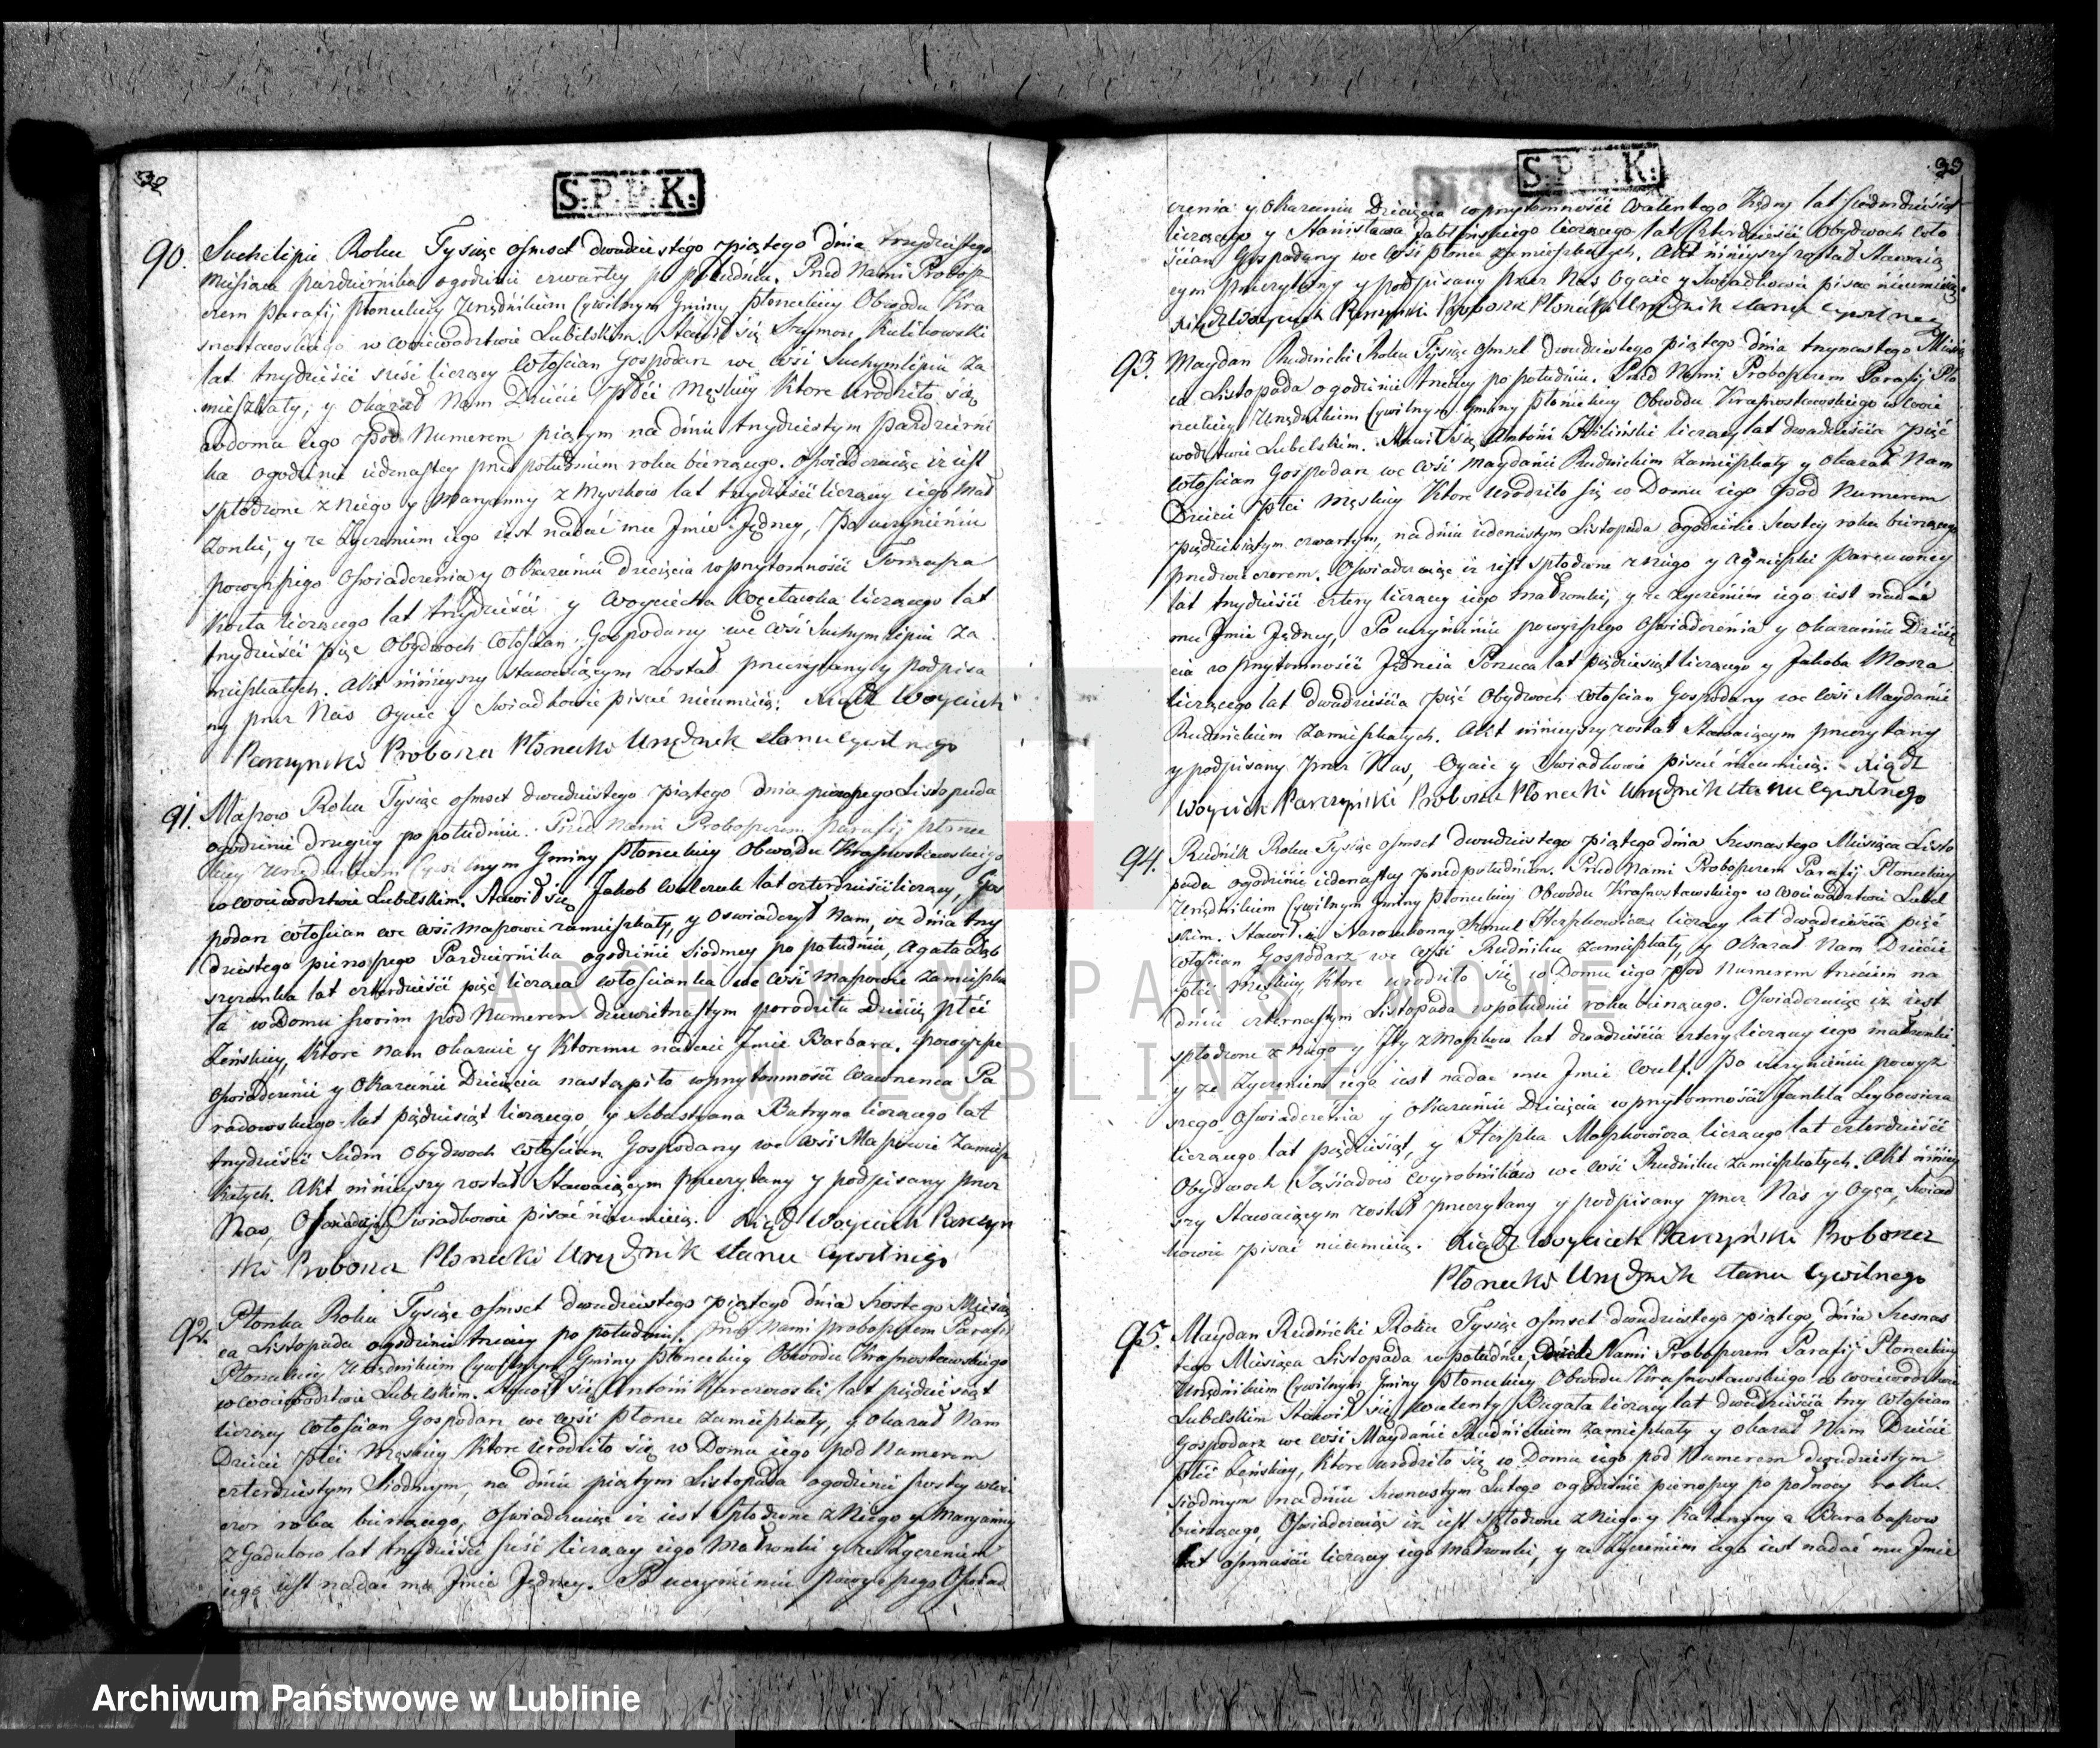 32
S.P.P.K.
90. Suchelipie Roku Tysiąc osmset dwudziestego piątego dnia trzydziestego
Miesiaca pazdziernika ogodzinie czwartey po południu. Przed Nami Probosz
czem Parafij Płoneckiey Urzędnikiem Cywilnym Gminy Płoneckiey Obwodu Kra
snostawskiego w Woiewodztwie Lubelskim. Stawił się Szymon Kulikowski
lat trzydzieści sześć liczący Włoscian Gospodarz we wsi Suchymlipiu za
mieszkały, y okazał Nam Dziecie płci Męskiey ktore urodziło się
wdomu iego pod Numerem piątym na dniu trzydziestym pazdzierni
ka ogodzinie iedenastey przed południem roku bieżącego. Oswiadczaiąc iż iest
spłodzone z niego y Maryanny z Myszkow lat trzydzieści liczący iego Mał
żonki, y że życzeniem iego iest nadać mu Jmie Jędrzey, Po uczynieniu
powyższego Oswiadczenia y okazaniu dziecięcia wprzytomności Tomasza
Kosta liczącego lat trzydzieści y Woyciecha liczącego lat
trzydzieści pięc Obydwoch Włoscian Gospodarzy we wsi Suchymlipiu za
mieszkałych. Akt ninieyszy stawaiącym został przeczytany y podpisa
ny przez Nas Oyciec y Swiadkowie pisać nieumieią. Xiądz Woyciech
Parczynski Proboszcz Płonecki Urzędnik stanu cywilnego
91. Maszow Roku Tysiąc osmset dwudziestego piątego dnia pierwszego Listopada
ogodzinie drugiey po południu. Przed Nami Proboszczem Parafij Płonec
kiey Urzędnikiem Cywilnym Gminy Płoneckiey Obwodu Krasnostawskiego
w Woiewodztwie Lubelskim. Stawił się Jakob Walczuk lat czterdzieści liczący, Gos
podarz Włoscian we wsi Maszowie zamieszkały, y oswiadczył Nam, iż dnia trzy
dziestego pierwszego Pazdziernika ogodzinie siodmey po południu, Agata
lat czterdzieści pięć licząca włoscianka we wsi Maszowie zamieszka
ła w Domu swoim pod Numerem dziewietnastym porodziła Dziecię płci
Żenskiey, ktore nam okazuie y ktoremu nadaie Jmie Barbara. Powyższe
Oswiadczenie y okazanie Dziecięcia nastąpiło wprzytomności Wawrzenca Pa
radowskiego lat pięćdziesiąt liczącego, y Sebastyana Batryna liczącego lat
trzydzieści siedm Obydwoch Włoscian Gospodarzy we wsi Maszowie Zamiesz
kałych. Akt ninieyszy został Stawaiącym przeczytany y podpisany przez
Nas, Oswiadczaiący Swiadkowie pisać nieumieią. Xiądz Woyciech Parczyn
ski Proboszcz Płonecki Urzędnik stanu cywilnego
92. Płonka Roku Tysiąc osmset dwudziestego piątego dnia szostego Miesią
ca Listopada ogodzinie trzeciey po południu. Przed Nami Proboszczem Parafij
Płoneckiey Urzędnikiem Cywilnym Gminy Płoneckiey Obwodu Krasnostawskiego
w Woiewodztwie Lubelskim. Stawił się Antoni Karczewski lat pięćdziesiąt
liczący Włoscian Gospodarz we wsi Płonce zamieszkały, y okazał Nam
Dziecie Płci Męskiey ktore urodziło się w Domu iego pod Numerem
czterdziestym siodmym, na dniu piątym Listopada ogodzinie szostey wie
czor roku bieżącego, Oswiadczaiąc iż iest Spłodzone z Niego y Maryanny
z Gadułow lat trzydzieści sześć liczący iego Małżonki y że Życzeniem
iego iest nadać mu Jmie Jędrzey. Po uczynieniu powyższego Oswiad
33
S.P.P.K.
czenia y Okazaniu Dziecięcia wprzytomności Walentego Kędry lat siedmdziesiąt
liczącego y Stanisława Jabłońskiego liczącego lat Czterdzieści Obydwoch Wło
ścian Gospodarzy we Wsi Płonce zamieszkałych. Akt ninieyszy został Stawaią
cym przeczytany y podpisany przez Nas Oyciec y Swiadkowie pisac nieumieią.
Xiądz Woyciech Parczynski Proboszcz Płonecki Urzędnik stanu cywilnego
93. Maydan Rudnicki Roku Tysiąc osmset dwudziestego piątego dnia trzynastego Miesią
ca Listopada ogodzinie trzeciey po południu. Przed Nami Proboszczem Parafij Pło
neckiey Urzędnikiem Cywilnym Gminy Płoneckiey Obwodu Krasnostawskiego w Woie
wodztwie Lubelskim. Stawił się Antoni Kiliński liczący lat dwadzieścia pięć
Włoscian Gospodarz we wsi Maydanie Rudnickim Zamieszkały y okazał Nam
Dziecie płci Męskiey ktore urodziło się w Domu iego pod Numerem
pięćdziesiątym czwartym, na dniu iedenastym Listopada ogodzinie szostey roku bieżącego
przedwieczorem. Oswiadczaiąc iż iest spłodzone z niego y Agnieszki Parcewney
lat trzydzieści cztery liczący iego małżonki, y że życzeniem iego iest nadać
mu Jmie Jędrzey, Po uczynieniu powyższego Oswiadczenia y okazaniu Dziecię
cia w przytomności Jędrzeia lat pięćdziesiąt liczącego y Jakoba Mazura
liczącego lat dwadzieścia pięć Obydwoch Włoscian Gospodarzy we wsi Maydanie
Rudnickim Zamieszkałych. Akt ninieyszy został stawaiącym przeczytany
y podpisany przez Nas, Oyciec y Swiadkowie pisać nieumieią. Xiądz
Woyciech Parczyński Proboszcz Płonecki Urzędnik stanu cywilnego
94. Rudnik Roku Tysiąc osmset dwudziestego piątego dnia szesnastego Miesiąca Listo
pada ogodzinie iedenastey przed południem. Przed Nami Proboszczem Parafij Płoneckiey
Urzędnikiem Cywilnym Gminy Płoneckiey Obwodu Krasnostawskiego w Woiewodztwie Lubel
skim. Stawił się Starozakonny Szmul Herszkowicz liczący lat dwadzieścia pięć
Włoscian Gospodarz we wsi Rudniku zamieszkały, y okazał Nam Dziecie
płci Męskiey ktore urodziło się w Domu iego pod Numerem trzecim na
dniu czternastym Listopada wpołudnie roku bieżącego. Oswiadczaiąc iż iest
spłodzone z niego y Ity z Moszkow lat dwadzieścia cztery liczący iego małżonki
y że Życzeniem iego iest nadać mu Jmie Wulf. Po uczynieniu powyż
szego Oswiadczenia y okazaniu Dziecięcia wprzytomności Jankla Leybowicza
liczącego lat pięćdziesiąt, y Herszka Moszkowicza liczącego lat czterdzieści
Obydwoch Sąsiadow wyrobnikow we wsi Rudniku zamieszkałych. Akt niniey
szy Stawaiącym został przeczytany y podpisany przez Nas y Oyca, Swiad
kowie pisać nieumieią. Xiądz Woyciech Parczyński Proboszcz
Płonecki Urzędnik stanu cywilnego
95. Maydan Rudnicki Roku Tysiąc osmset dwudziestego piątego dnia szesnas
tego Miesiąca Listopada wpołudnie, Przed Nami Proboszczem Parafij Płoneckiey
Urzędnikiem Cywilnym Gminy Płoneckiey Obwodu Krasnostawskiego w Woiewodztwie
Lubelskim Stawił się Walenty Bagata liczący lat dwadzieścia trzy Włoscian
Gospodarz we wsi Maydanie Rudnickim zamieszkały y okazał Nam Dziecie
płci Żenskiey, ktore urodziło się w Domu iego pod Numerem dwudziestym
siodmym na dniu szesnastym Lutego ogodzinie pierwszey po połnocy roku
bieżącego, Oswiadczaiąc iż iest spłodzone z Niego y Katarzyny z Barabaszow
lat osmnaście liczący iego małżonki, y że życzeniem iego iest nadać mu Jmie
ARCHIWUM PAŃSTWOWE
W LUBLINIE
Archiwum Państwowe w Lublinie